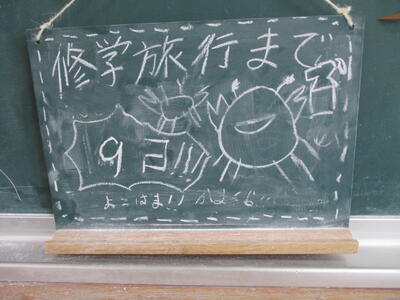 修学旅行まで
9日!!!
よこはま!! かまくら!!